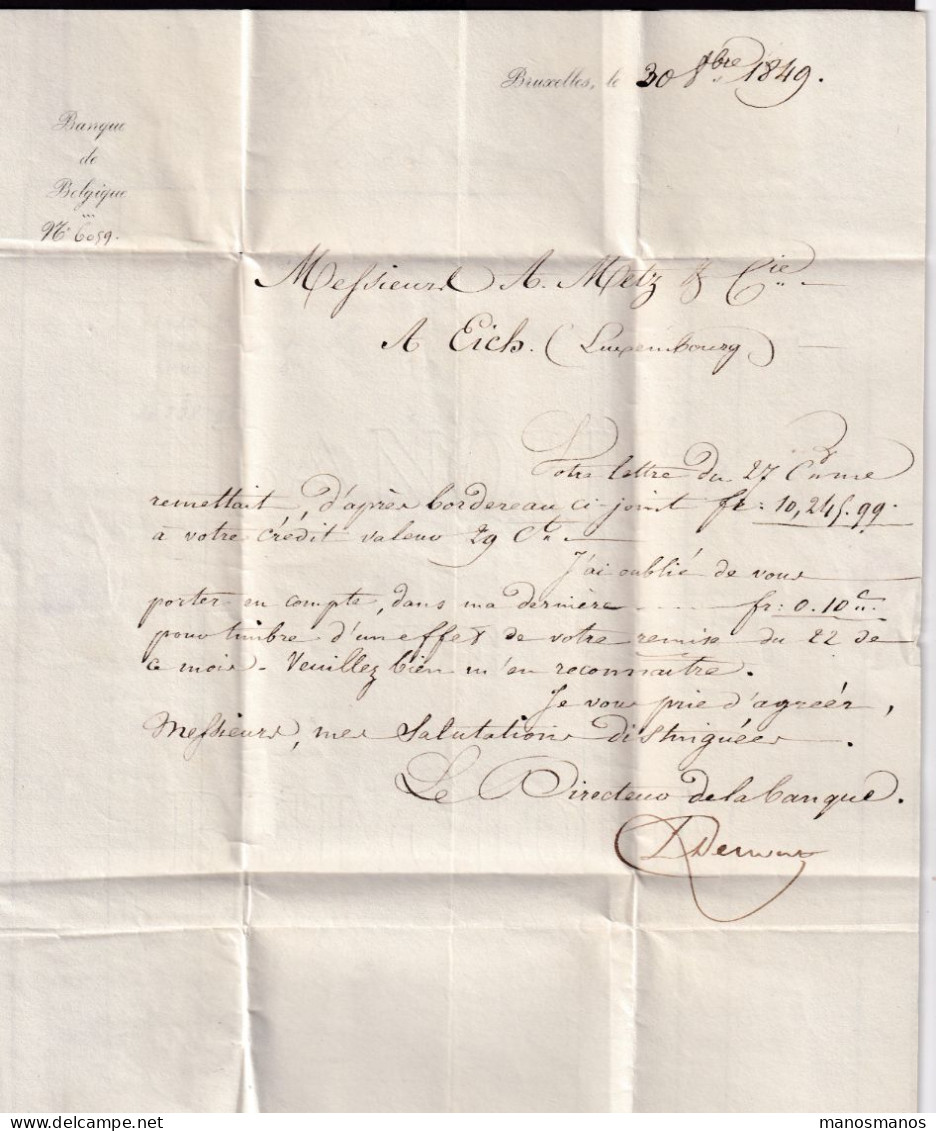 Bruxelles, le 30 8bre 1849.
Banque
de
Belgique
No 6059.
Messieurs A. Metz & Cie
A Eich. (Luxembourg)
Votre lettre du 27 Ct me
remettait, d'après bordereau ci-joint fr: 10,245.99.
à votre crédit valeur 29 Ct
J'ai oublié de vous
porter en compte, dans ma dernière fr: 0.10 Cn.
pour timbre d'un effet de votre remise du 22 de
ce mois. Veuillez bien m'en reconnaitre.
Je vous prie d'agréér,
Messieurs, mes salutations distinguées.
Le Directeur de la banque.
manosmanos